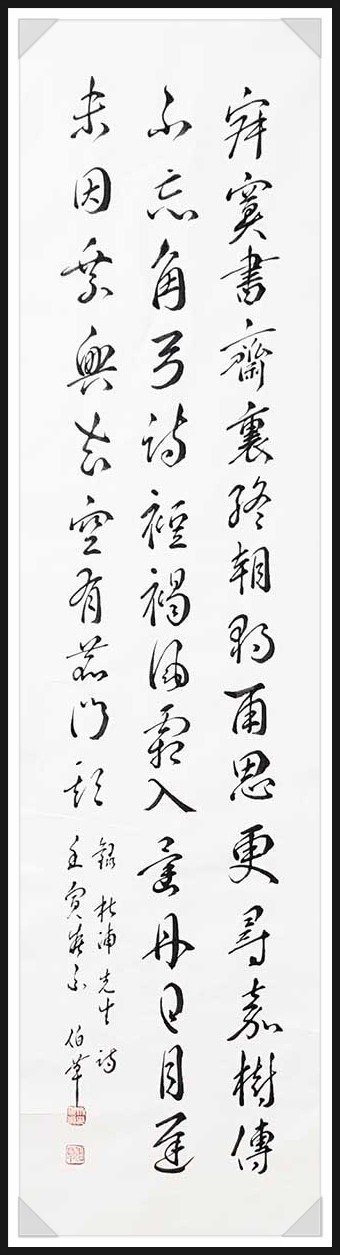 寂寞書齋裏終朝獨爾思更尋嘉樹傳
不忘角弓詩裋褐風霜入還丹日月遲
未因乘興去空有鹿門期
錄杜浦先生詩
壬寅 伯華